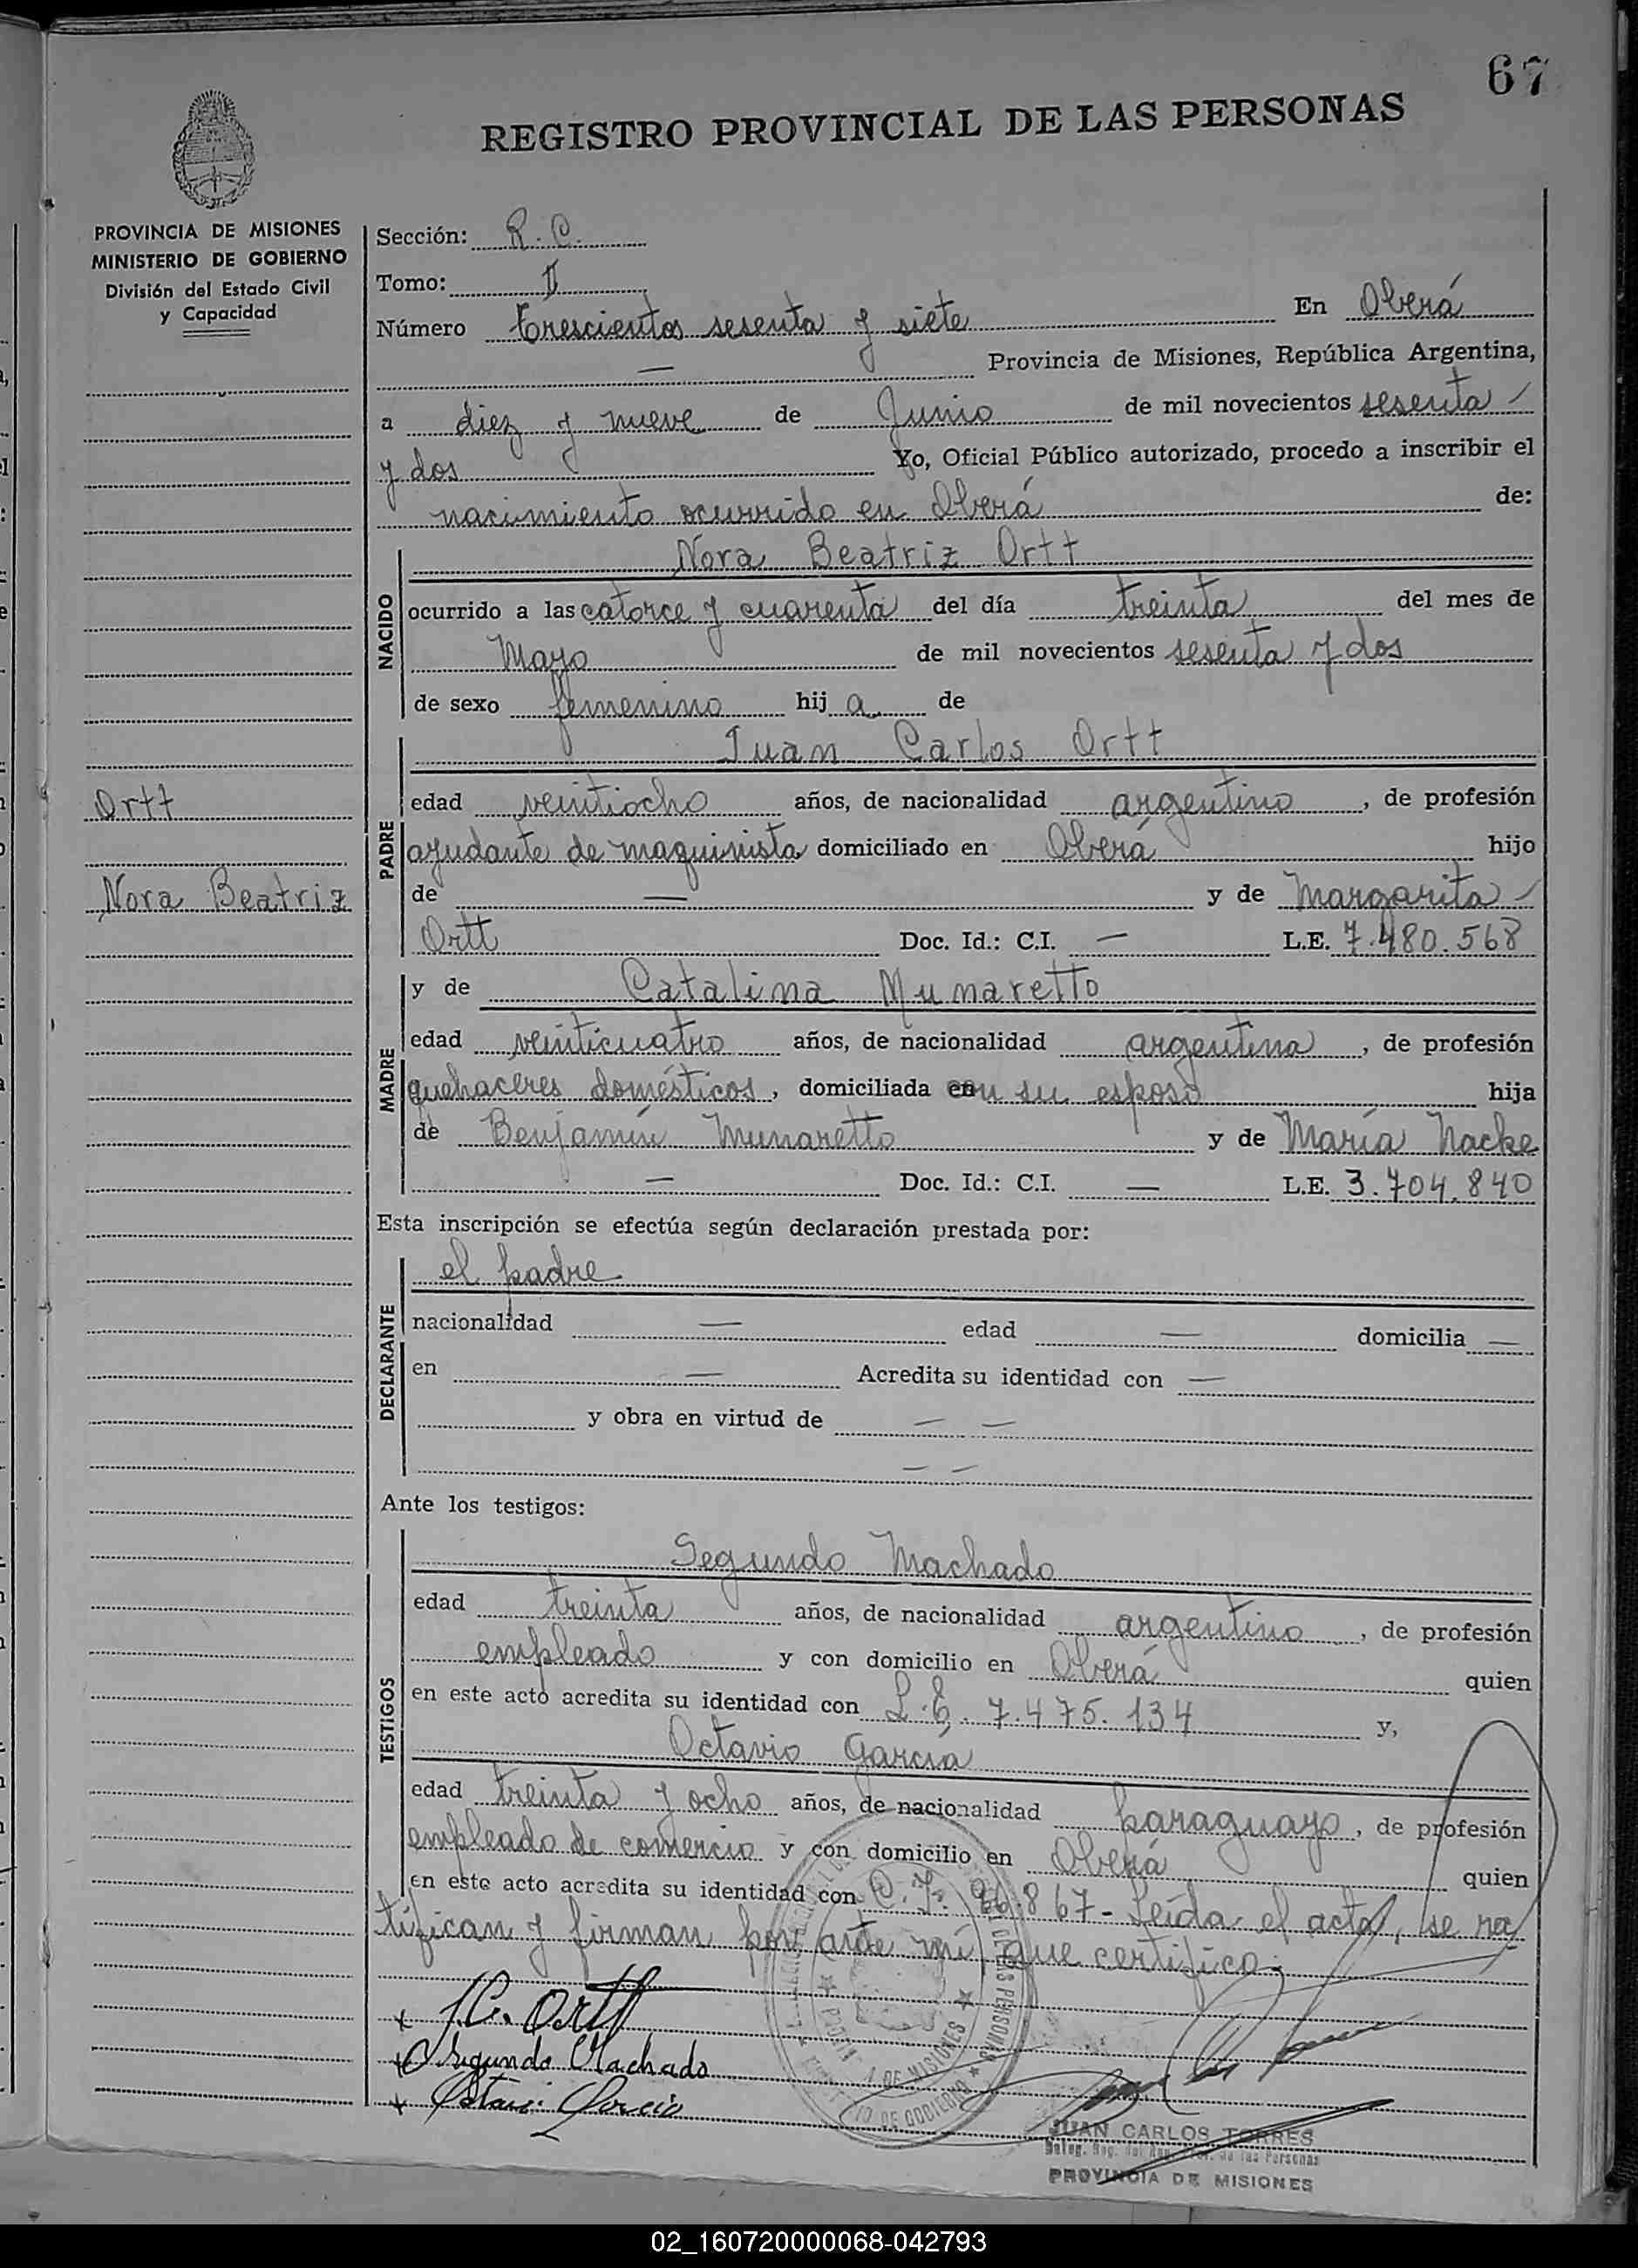 67
REGISTRO PROVINCIAL DE LAS PERSONAS
PROVINCIA DE MISIONES
MINISTERIO DE GOBIERNO
División del Estado Civil
y Capacidad
Sección: R. C.
Tomo: II
Número Trescientos sesenta y siete En Oberá
— Provincia de Misiones, República Argentina,
a diez y nueve de Junio de mil novecientos sesenta —
y dos Yo, Oficial Público autorizado, procedo a inscribir el
nacimiento ocurrido en Oberá de:
NACIDO
Nora Beatriz Ortt
ocurrido a las catorce y cuarenta del día treinta del mes de
Mayo de mil novecientos sesenta y dos
de sexo femenino hij a de
PADRE
Juan Carlos Ortt
Ortt
edad veintiocho años, de nacionalidad argentino, de profesión
ayudante de maquinista domiciliado en Oberá hijo
Nora Beatriz
de — y de Margarita —
Ortt Doc. Id.: C.I. — L.E. 7.480.568
MADRE
y de Catalina Munaretto
edad veinticuatro años, de nacionalidad argentina, de profesión
quehaceres domésticos, domiciliada con su esposo hija
de Benjamín Munaretto y de María Nacke
— Doc. Id.: C.I. — L.E. 3.704.840
Esta inscripción se efectúa según declaración prestada por:
DECLARANTE
el padre
nacionalidad — edad — domicilia —
en — Acredita su identidad con —
y obra en virtud de — —
— —
Ante los testigos:
TESTIGOS
Segundo Machado
edad treinta años, de nacionalidad argentino, de profesión
empleado y con domicilio en Oberá quien
en este acto acredita su identidad con L.E. 7.475.134 y,
Octavio García
edad treinta y ocho años, de nacionalidad paraguayo, de profesión
empleado de comercio y con domicilio en Oberá quien
en este acto acredita su identidad con C.I. 96.867- Leída el acta, se ra
tifican y firman por ante mí que certifico.
x J.C. Ortt
x Segundo Machado
x Octavio García
DE MISIONES
JUAN CARLOS TORRES
Deleg. Reg. de las Personas
PROVINCIA DE MISIONES
02_160720000068-042793